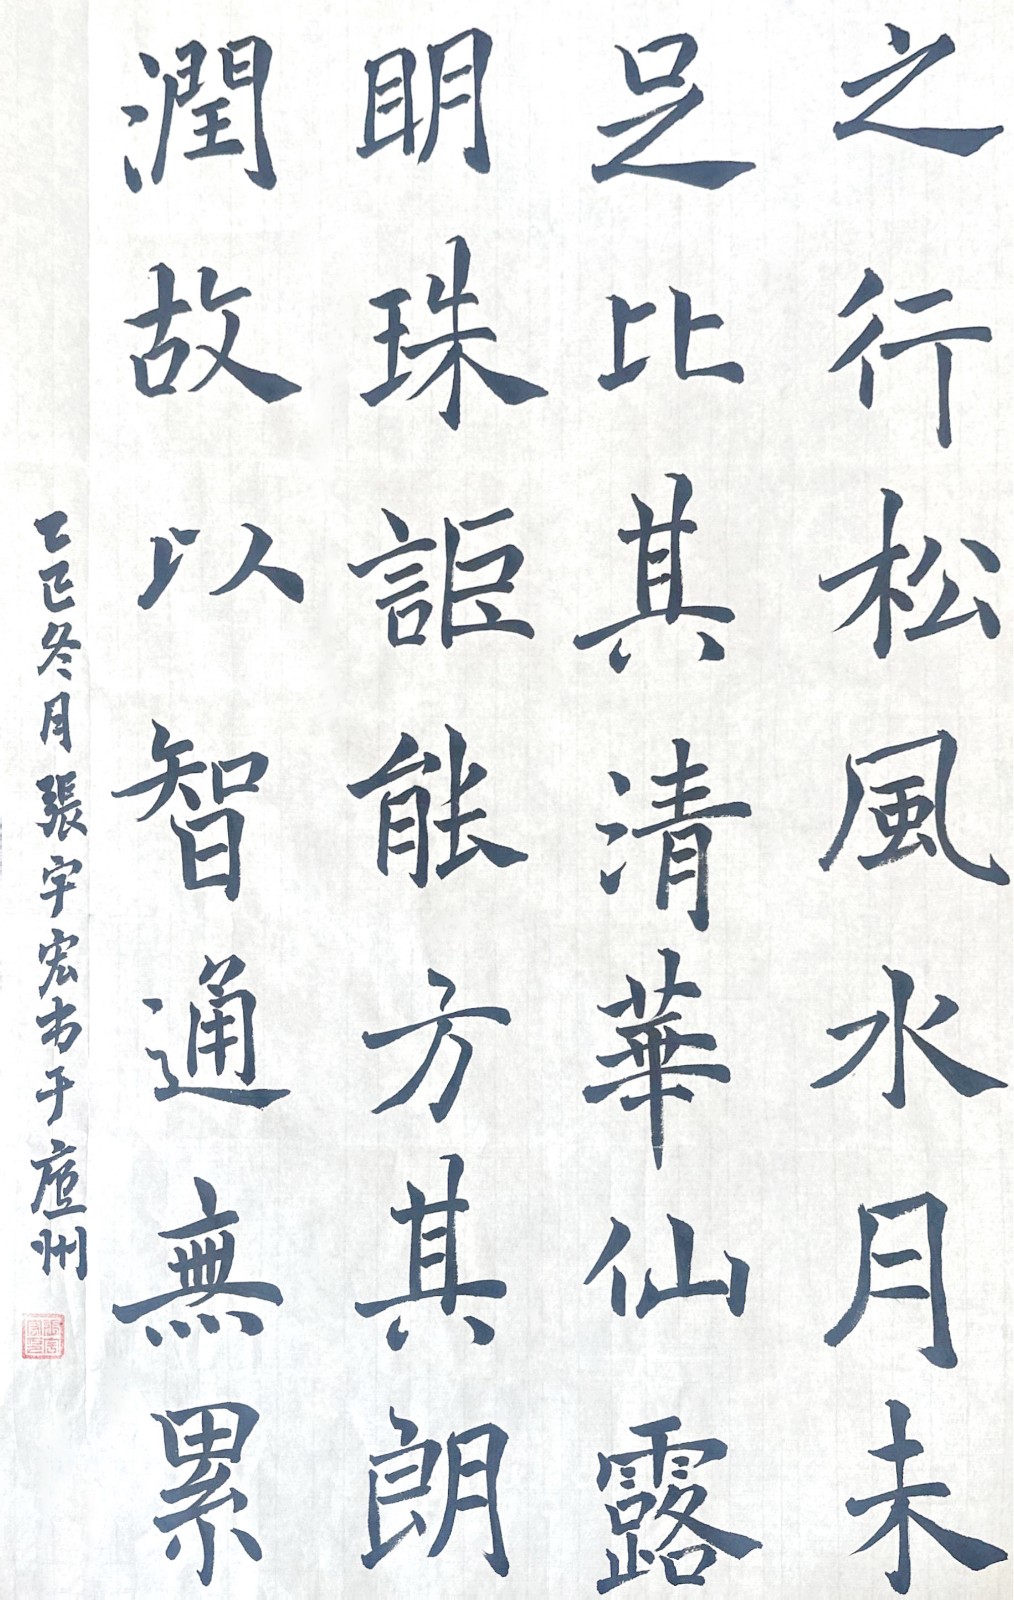 之行松風水月未
足比其清華仙露
明珠詎能方其朗
潤故以智通無累
乙巳冬月張宇宏书于廬州